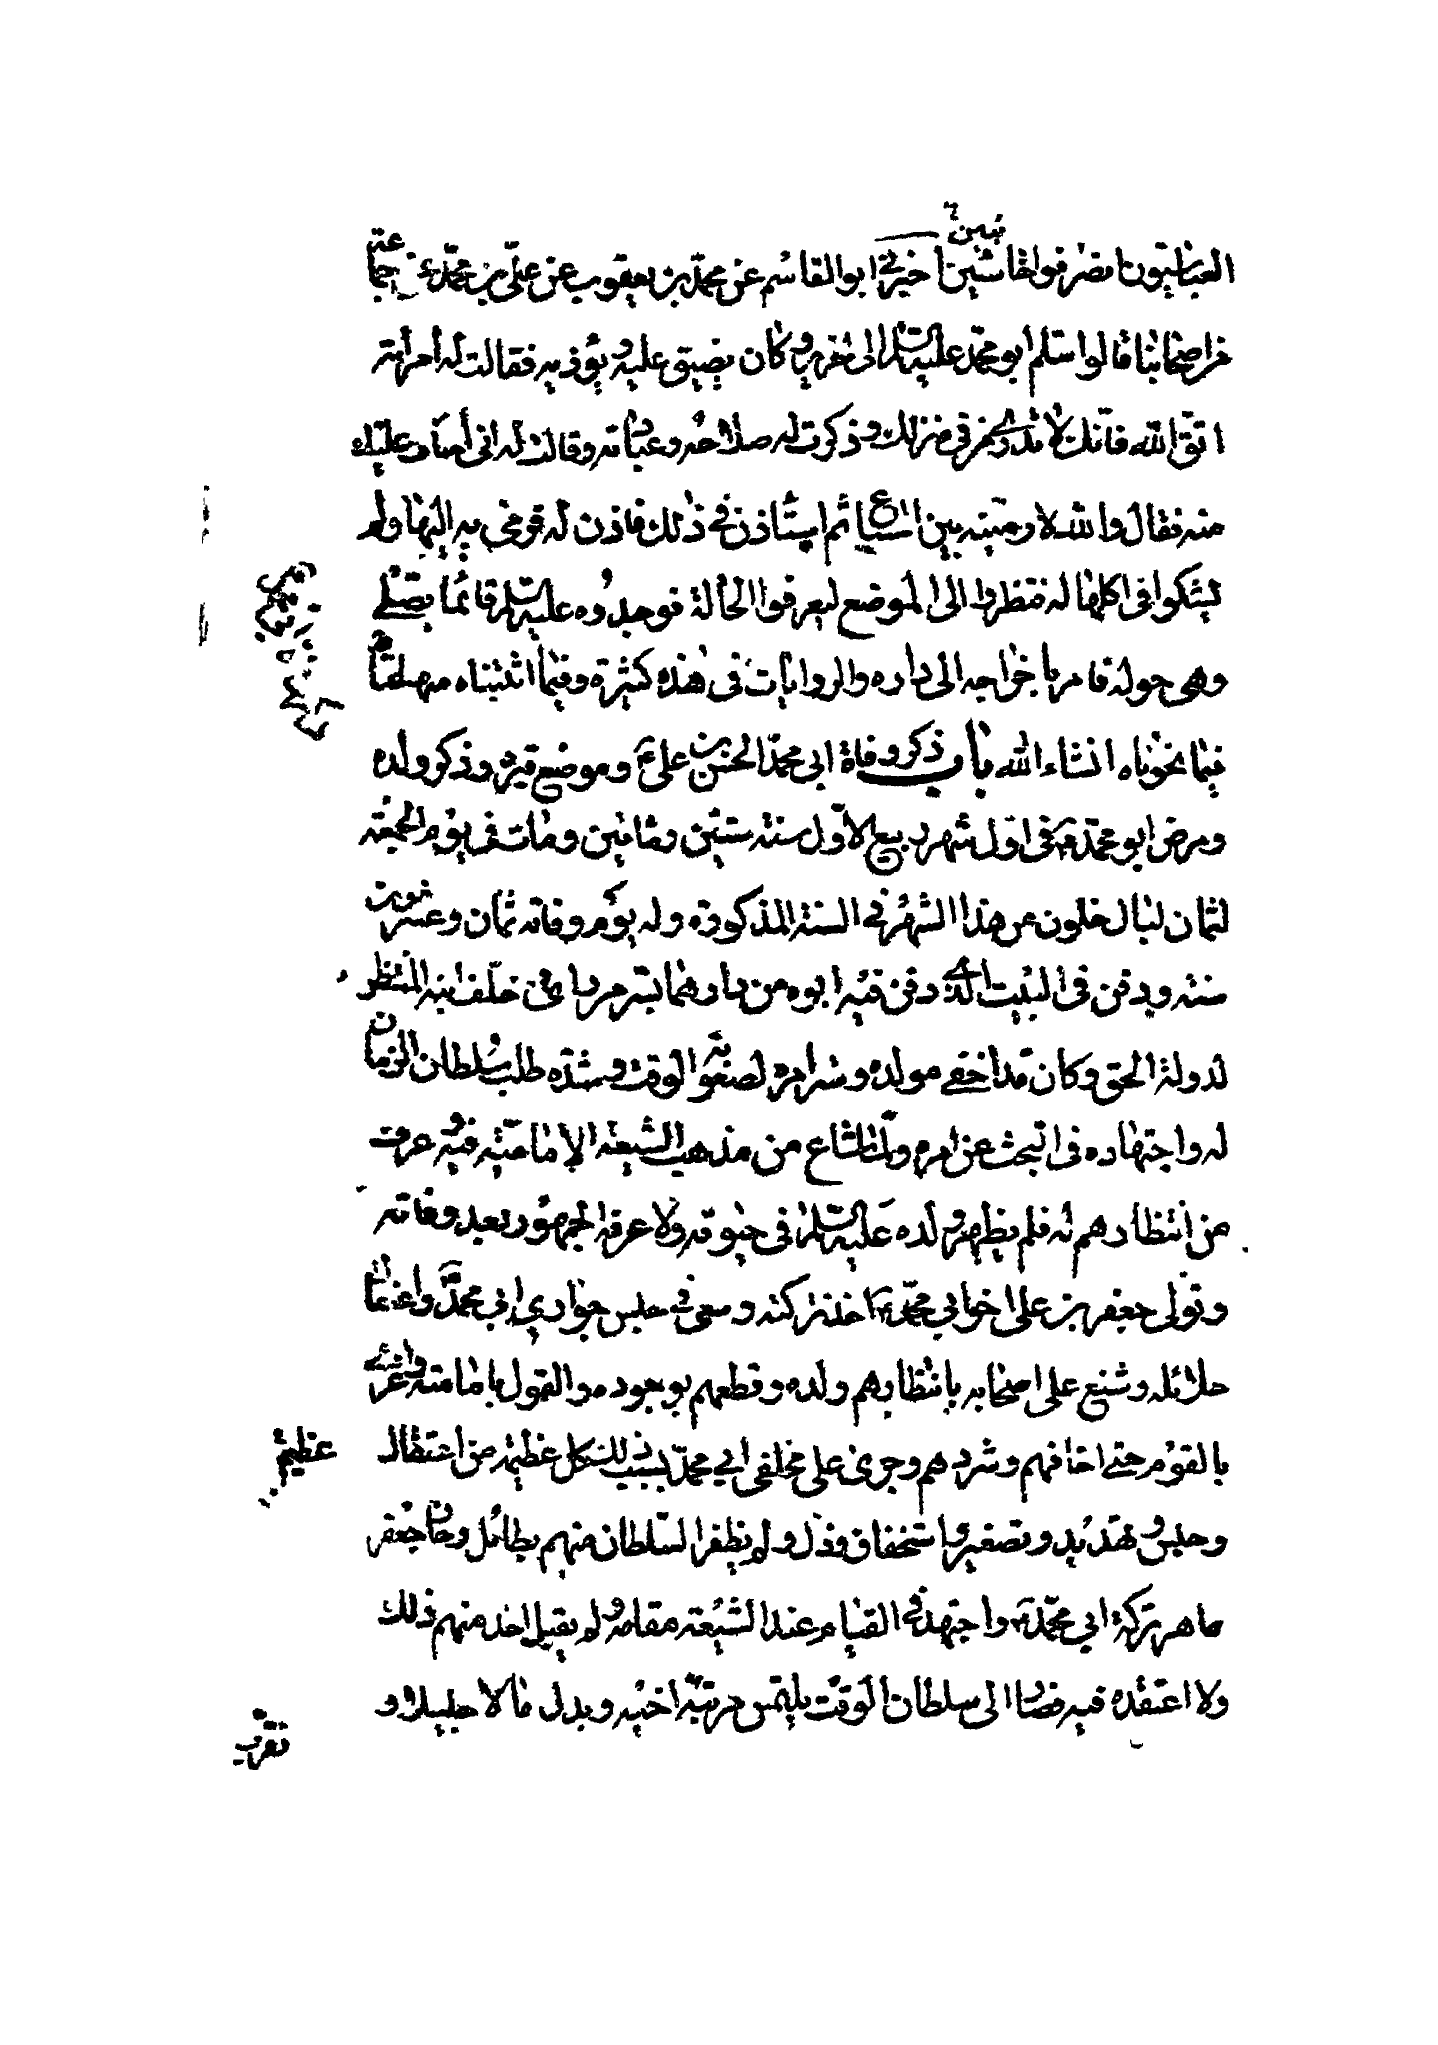 العباسيون فانصرفوا خائبين أخبرني ابو القاسم عن محمد بن يعقوب عن علي بن محمد عن جماعة
من اصحابنا قالوا سلم ابو محمد عليه السلم الى نحرير وكان يضيق عليه ويؤذيه فقالت له امراته
اتق الله فانك لا تدري من في منزلك وذكرت له صلاحه وعبادته وقالت له انى أخاف عليك
منه فقال والله لارمينه بين السباع ثم استاذن في ذلك فاذن له فرمى به اليها ولم
يشكوا فى اكلها له فنظروا الى الموضع ليعرفوا الحالة فوجدوه عليه السلم قائما يصلي
وهى حوله فامر باخراجه الى داره والروايات فى هذه كثيرة وفيما اثبتناه منها
فيما نحوناه انشاء الله باب ذكر وفاة ابي محمد الحسن بن علي ع وموضع قبره وذكر ولده
ومرض ابو محمد ع فى اول شهر ربيع الاول سنة ستين ومائتين ومات فى يوم الجمعة
لثمان ليال خلون من هذا الشهر في السنة المذكورة وله يوم وفاته ثمان وعشرون
سنة ودفن فى البيت الذي دفن فيه ابوه من دارهما بسر من راى وخلف ابنه المنتظر
لدولة الحق وكان قد اخفى مولده وستر امره لصعوبة الوقت وشدة طلب سلطان الزمان
له واجتهاده فى البحث عن امره ولما شاع من مذهب الشيعة الامامية فيه وعرف
من انتظارهم له فلم يظهر ولده عليه السلم فى حيوته ولا عرفه الجمهور بعد وفاته
وتولى جعفر بن على اخو ابي محمد ع اخذ تركته وسعى في حبس جواري ابي محمد ع واعتقال
حلائله وشنع على اصحابه بانتظارهم ولده وقطعهم بوجوده والقول بامامته واغرى
بالقوم حتى اخافهم وشردهم وجرى على مخلفى ابي محمد بسبب ذلك كل عظيمة من اعتقال
عظيم
وحبس وتهديد وتصغير واستخفاف وذل ولم يظفر السلطان منهم بطائل وحاز جعفر
ظاهر تركة ابي محمد ع واجتهد في القيام عند الشيعة مقامه ولم يقبل احد منهم ذلك
ولا اعتقده فيه فصار الى سلطان الوقت يلتمس مرتبة اخيه وبذل مالا جليلا و
تقرب